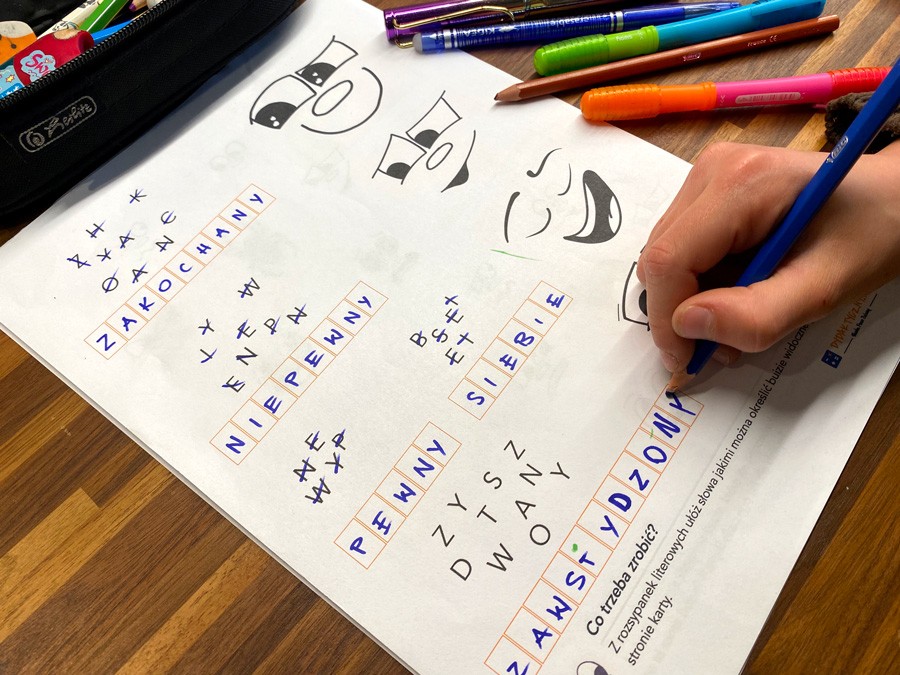 Herlitz
K
H C
Z K A N
O A
ZAKOCHANY
W
Y E P N
I N
E
NIEPEWNY
I
B S E
E I
SIEBIE
E P
N Y
W
PEWNY
Z
S N Y
Z Y T A O
D W
ZAWSTYDZONY
Co trzeba zrobić?
Z rozsypanek literowych ułóż słowa jakimi można określić buzie widoczne
stronie karty.